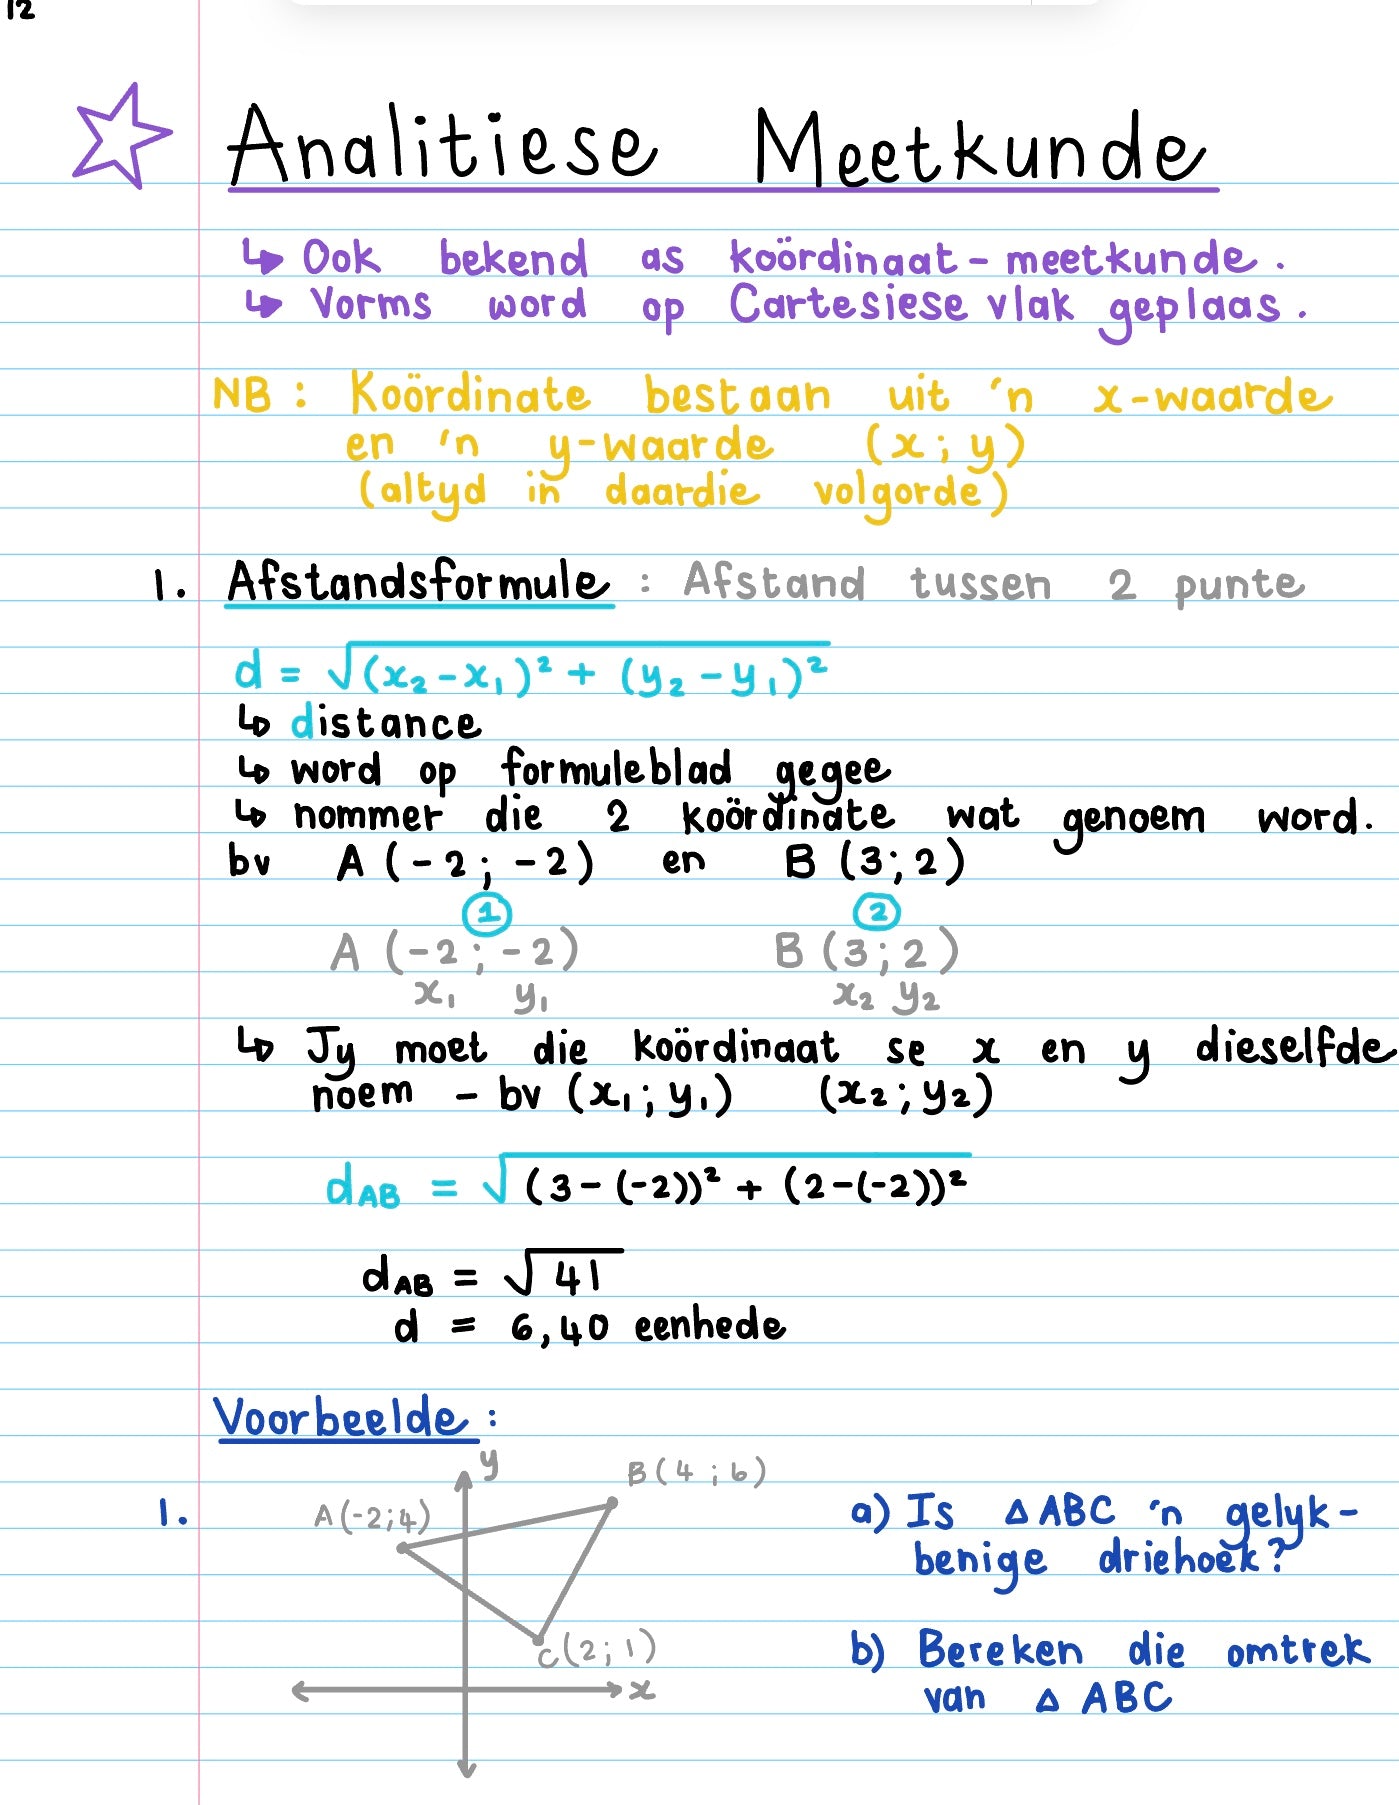 12
Analitiese Meetkunde
↳ Ook bekend as koördinaat-meetkunde.
↳ Vorms word op Cartesiese vlak geplaas.
NB: Koördinate bestaan uit 'n x-waarde
en 'n y-waarde (x; y)
(altyd in daardie volgorde)
1. Afstandsformule: Afstand tussen 2 punte
d = √(x₂-x₁)² + (y₂-y₁)²
↳ distance
↳ word op formuleblad gegee
↳ nommer die 2 koördinate wat genoem word.
bv A(-2; -2) en B(3; 2)
① ②
A(-2; -2) B(3; 2)
x₁ y₁ x₂ y₂
↳ Jy moet die koördinaat se x en y dieselfde
noem - bv (x₁; y₁) (x₂; y₂)
dAB = √(3-(-2))² + (2-(-2))²
dAB = √41
d = 6,40 eenhede
Voorbeelde:
1.
y
B(4; 6)
A(-2; 4)
C(2; 1)
x
a) Is △ABC 'n gelyk-
benige driehoek?
b) Bereken die omtrek
van △ ABC